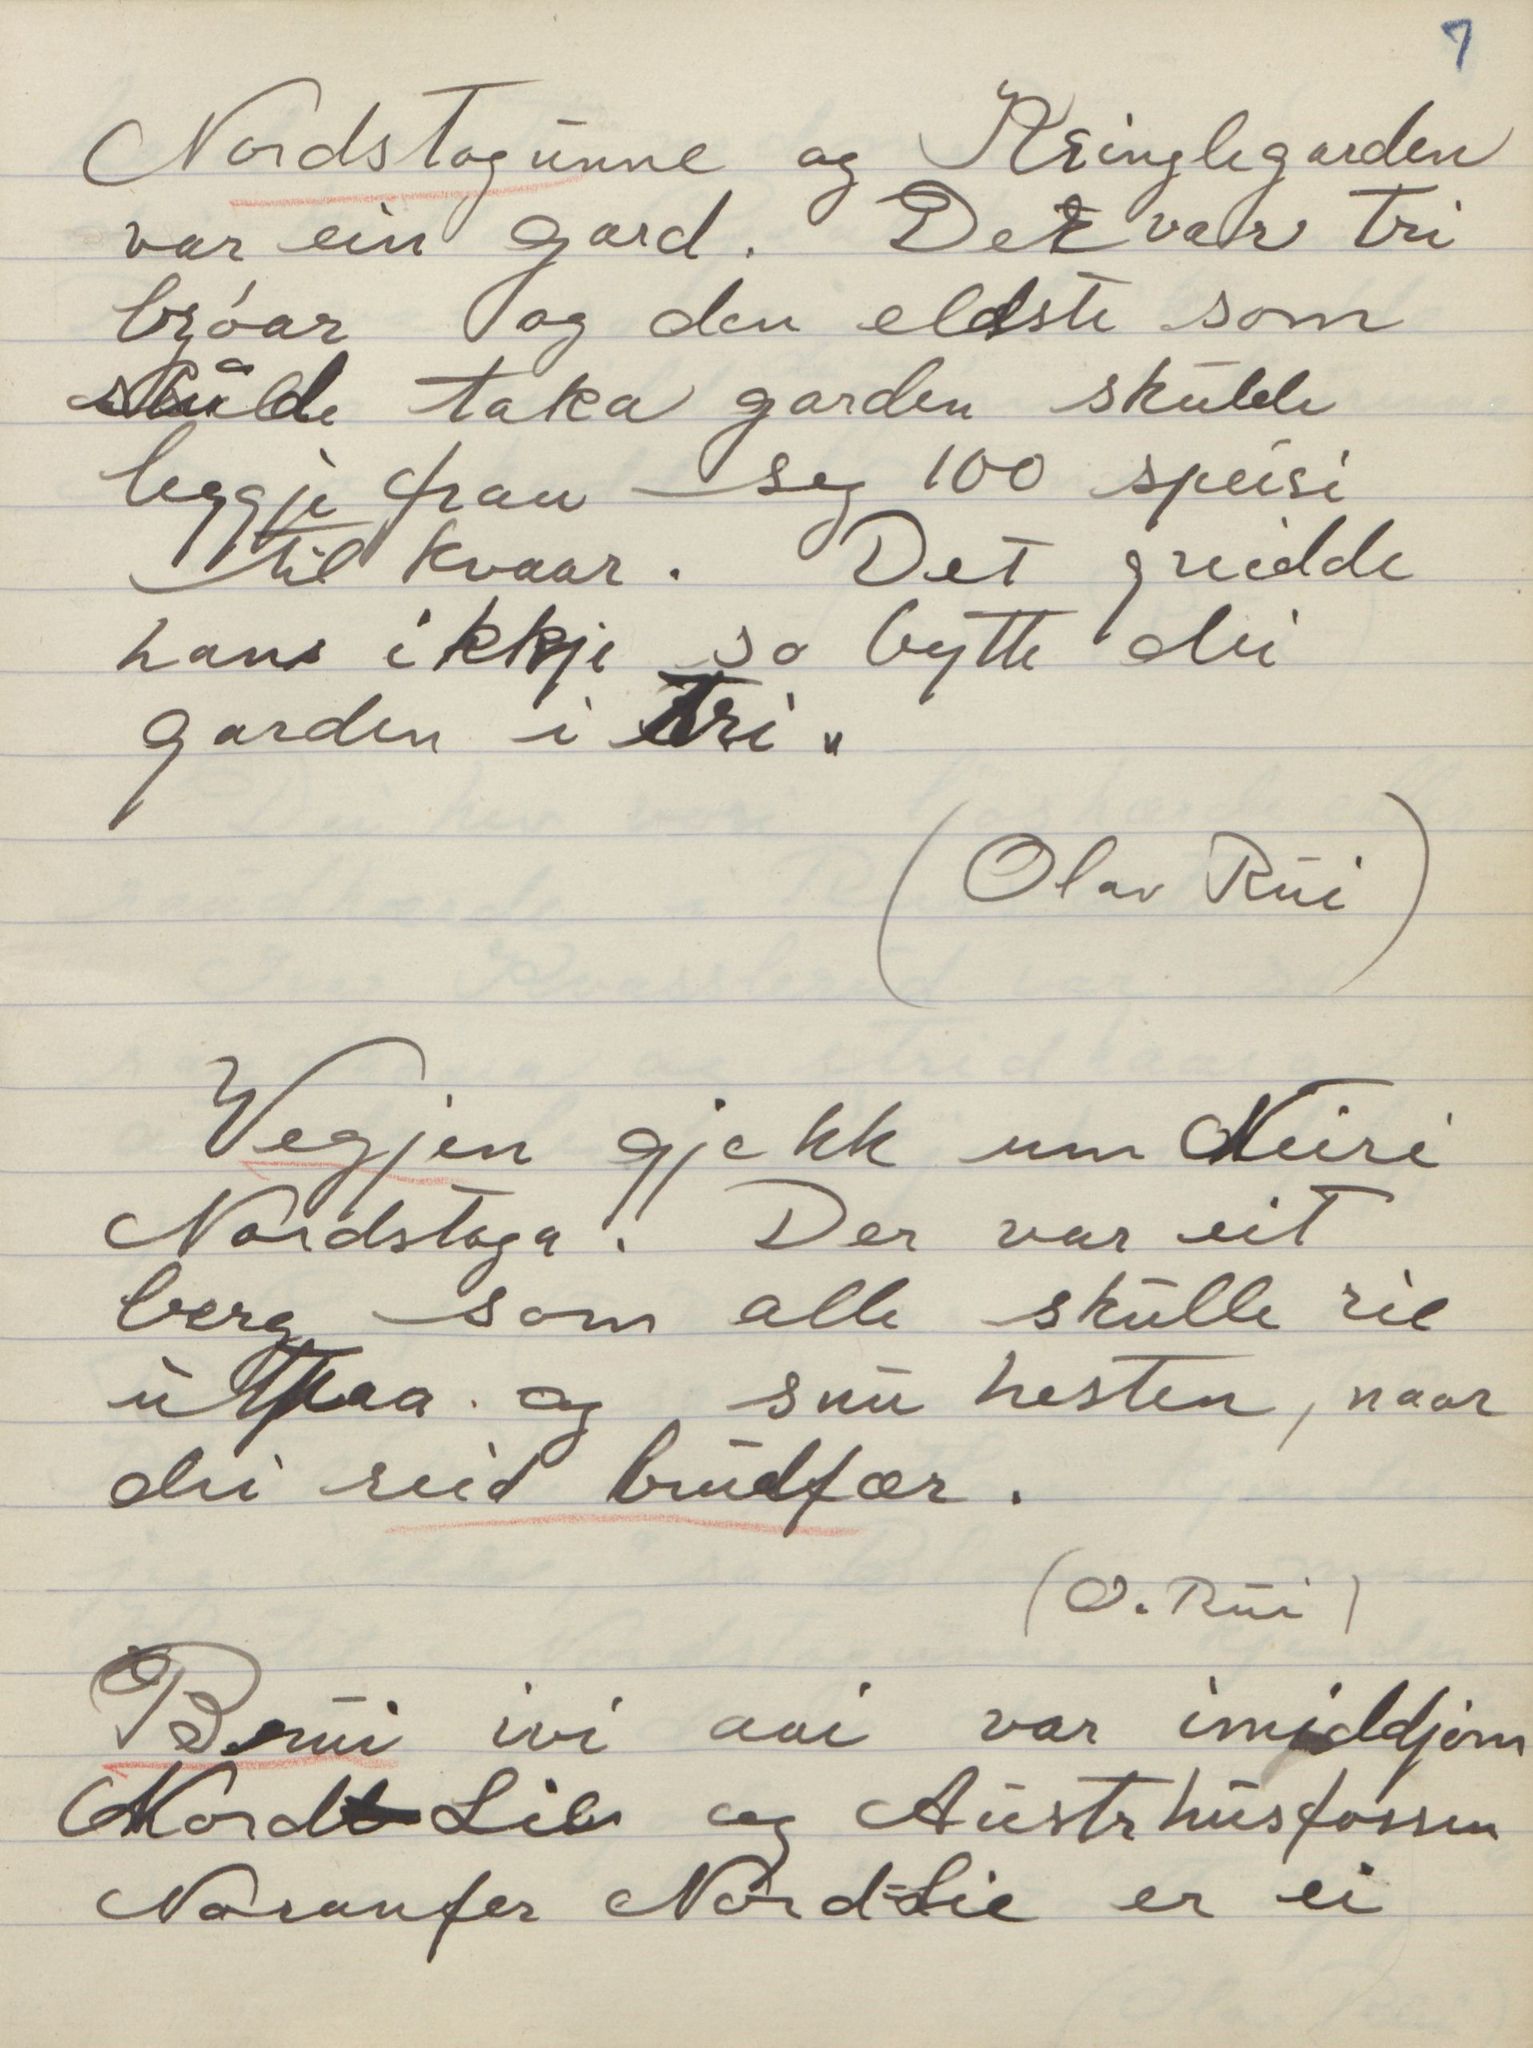 7
Nordstogunne og Kringlegarden
var ein gard. Det var tri
bróar og den eldste som
skulde taka garden skulde
leggje fraa seg 100 speisi
til kvaar. Det greidde
hans ikkje so bytte dei
garden i tri.
(Olav Rui)
Vegjen gjekk um Neiri
Nordstoga. Der var eit
berg som alle skulle rie
utpaa og snu hesten, naar
dei reid brudfær.
(O. Rui)
Brui ivi aai var imiddjom
Nord Lie og Austrhusfossen
Noranfer Nord-Lie er ei